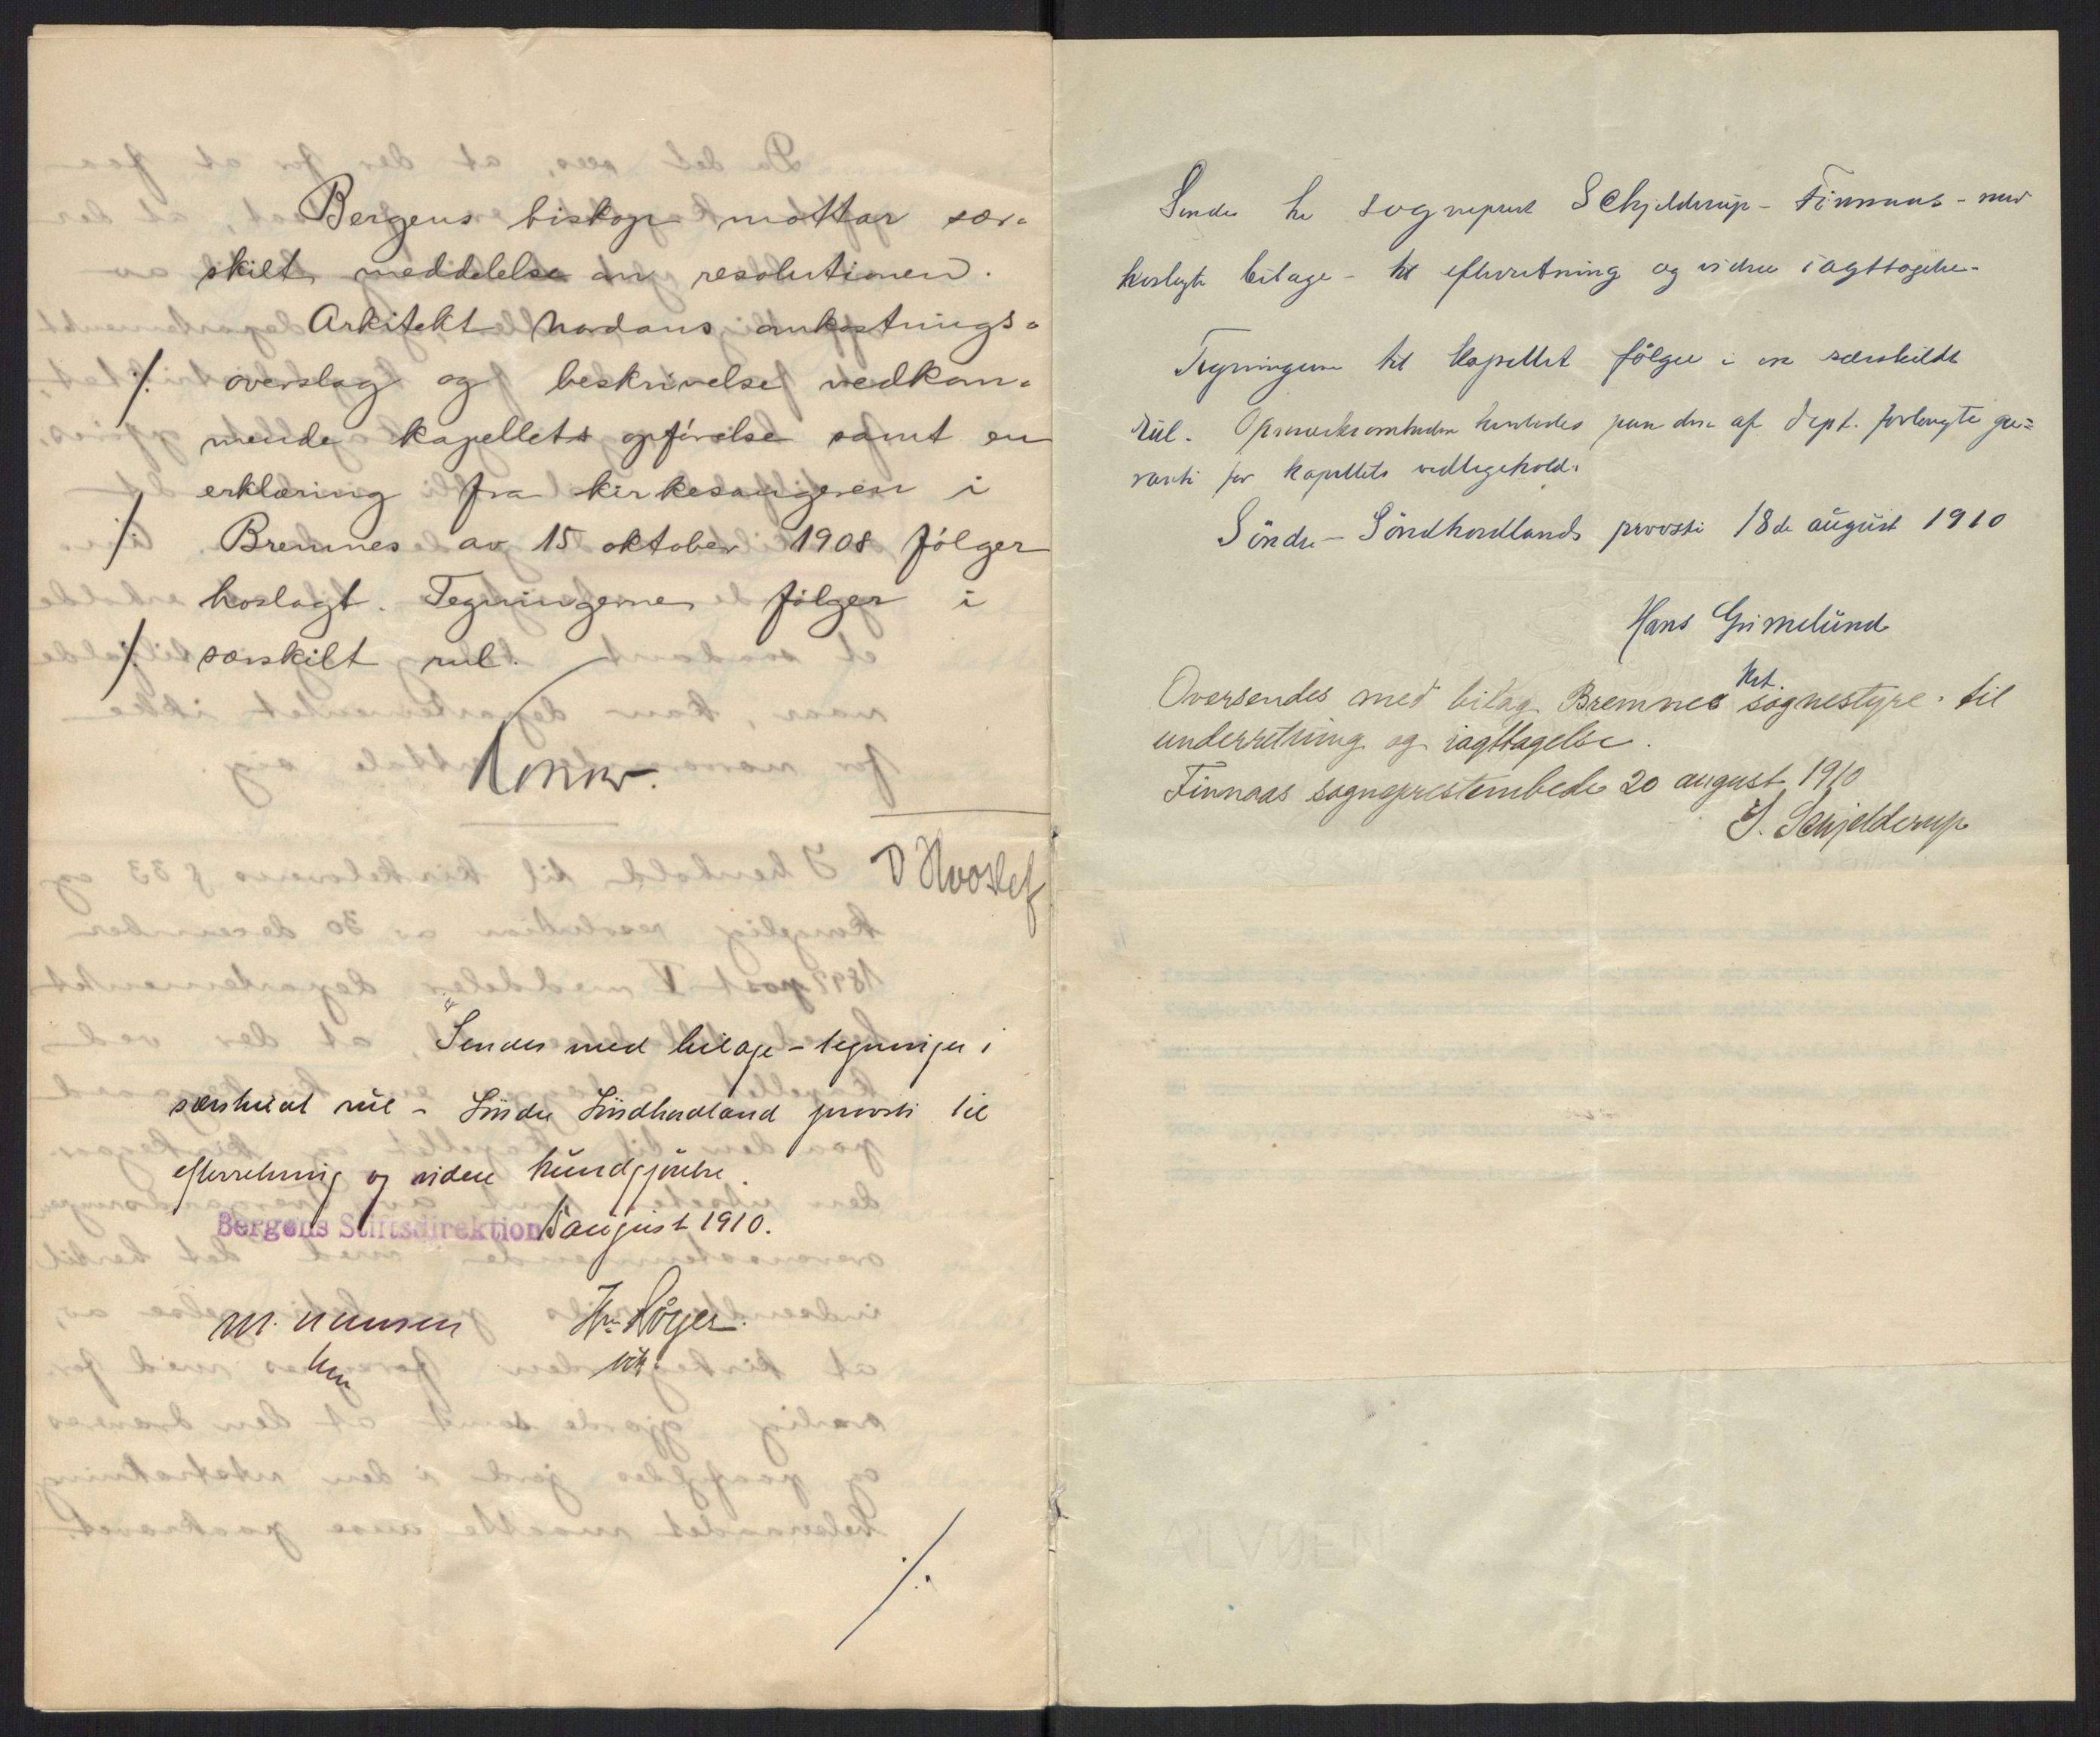 Bergens biskop mottar sær-
skilt meddelelse om resolutionen.
Arkitekt Nordans omkostnings-
·/. overslag og beskrivelse vedkom-
mende kapellets opførelse samt en
erklæring fra kirkesangeren i
·/. Bremnes av 15 oktober 1908 følger
hoslagt. Tegningerne følger i
·/ særskilt rul.
Konow.
D Hvoslef
Sendes med bilage – tegninger i
særskilt rul – Søndre Søndhordland provsti til
efterretning og videre kundgjørelse.
Bergens Stiftsdirektion 15 august 1910.
M. Hansen
Høyer.
·/.
Sendes hr sogneprest Schjelderup – Finnaas – med
hoslagte bilage – til efterretning og videre iagttagelse.
Tegningerne til kapellet følger i en særskildt
rul. Opmerksomheden henledes paa den af dept. forlangte ga=
ranti for kapellets vedligehold.
Söndre – Söndhordlands provsti 18de august 1910
Hans Grimelund
Oversendes med bilag Bremnes sognestyre til
underretning og iagttagelse.
Finnaas sogneprestembede 20 august 1910
J. Schjelderup
ALVØEN